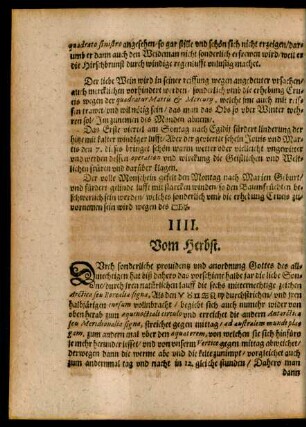 quadrato sinistro angesehen so gar stille und schön sich nicht erzeigen / dar-
umb er dann auch den Weidman nicht sonderlich erfrewen wird / weil er
die Hirschbrunst durch windige regenlufft unlustig machet.
Der liebe Wein wird in seiner reiffung wegen angedeuter ursachen
auch mercklichen vorhindert werden / sonderlich und die erhebung
wegen der quadratur Martis & Mercurij, welche ihm auch mit reif-
fen trawet und wil nötig sein / das man das Obs so uber Winter weh-
ren sol / im zunemen des Monden abneme.
Das Erste viertel am Sontag nach Egidii fürdert linderung der
hitz mit kalter windiger lufft / Aber der gevierdt schein Jovis und Mar-
tis den 7. bringet schön warm wetter oder vieleicht ungewitter
und werden dessen operation und wirckung die Geistlichen und Welt-
lichen spüren und darüber klagen.
Der volle Monschein gefelt den Montag nach Marien Geburt /
und fürdert gelinde lufft mit starcken winden so den Baumfrüchten be-
schwerlich sein werden / welches sonderlich umb die erhebung
zuvornemen sein wird wegen des
IIII.
Vom Herbst.
DUrch sonderliche providentz und anordnung Gottes des all-
mechtigen hat biß dahero das vorschiene halbe jar die liebe Son-
ne / durch iren natürlichen lauff die sechs mitternechtige zeichen
Arctica seu Borealia signa, Als den
halbjärigen cursum volnbracht / begiebt sich auch nunmehr wider von
oben herab zum aequinoctiali circulo und erreichet die andern Antarctica
seu Meridionalia signa, streichet gegen mittag / ad australem mundi pla-
gam, zum andern mal uber den aequatorem, von welchen sie sich hinfüro
je mehr herunder lesset / und von unserm Vertice gegen mittag abweichet /
derwegen dann die werme abe und die kelte zunimpt / vorgleichet auch
zum andernmal tag und nacht in 12. gleiche stunden / Dahero man
dann